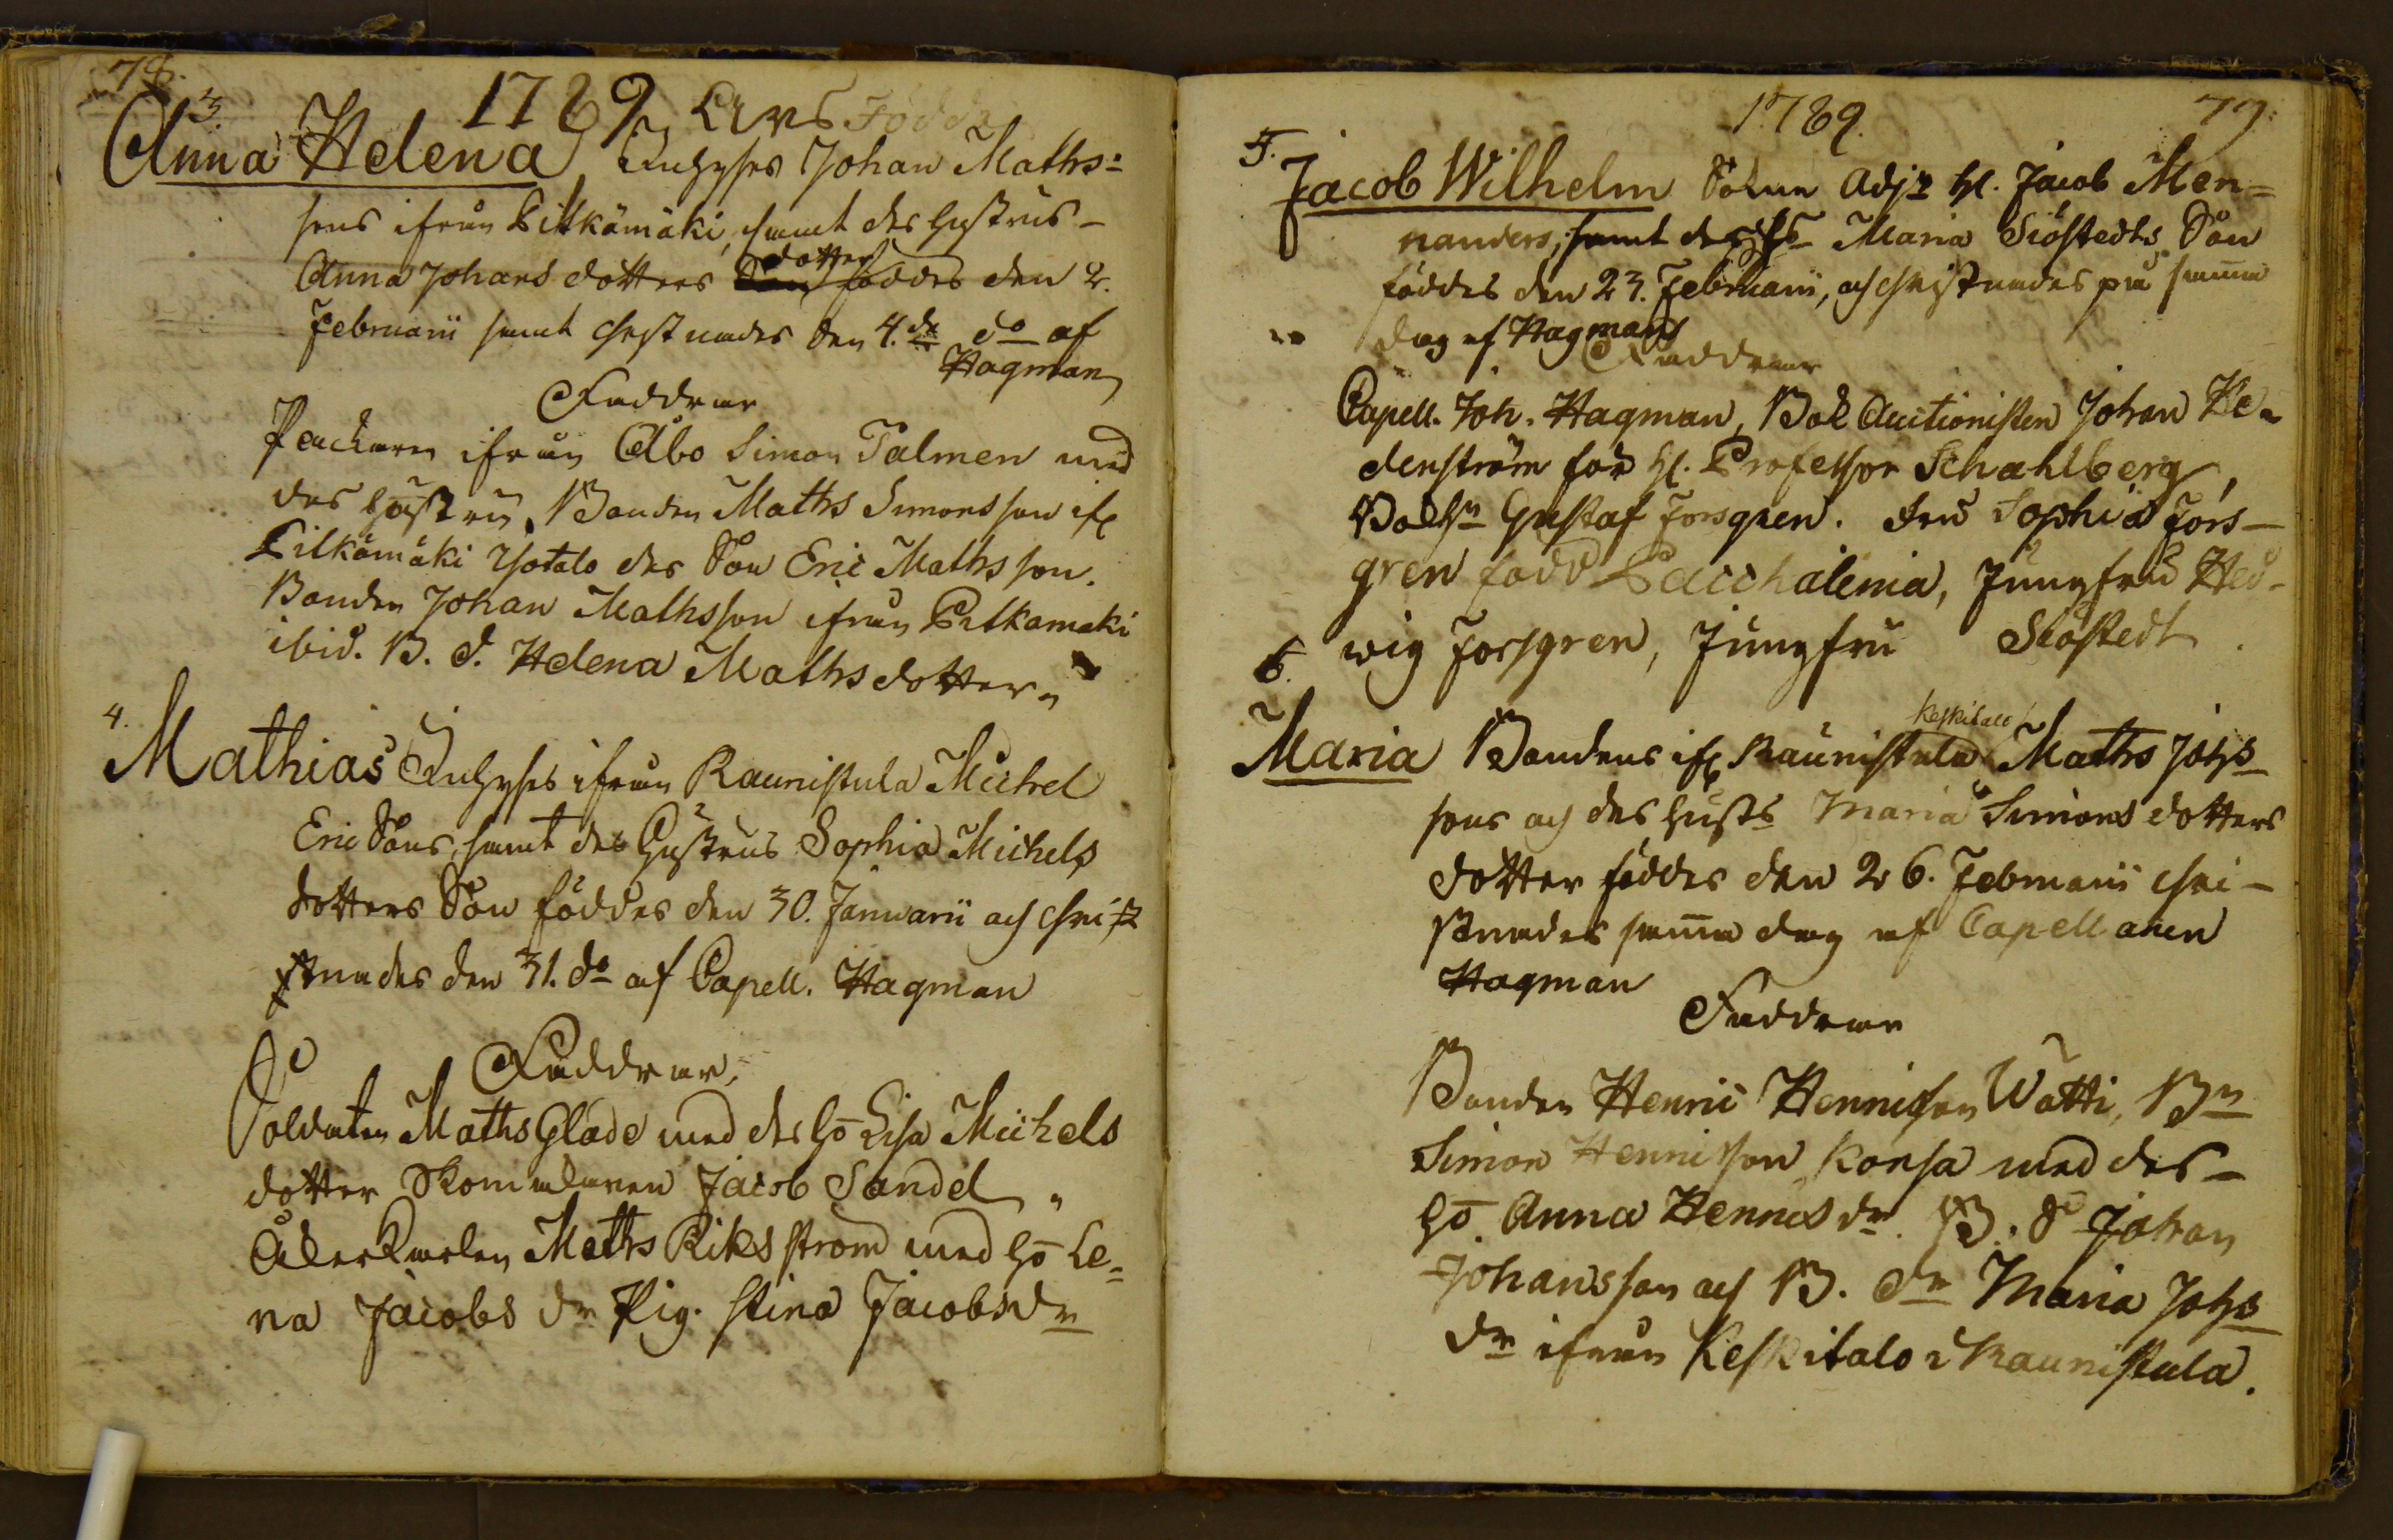 78.
1789 Års Födde
3.
Anna Helena, Inhyses Johan Maths=
sons ifrån Pitkämäki, samt des hustrus
Anna Johans dotters dotter föddes den 2.
Februarii samt christnades den 4. do af
Hagman
Faddrar
Packaren ifrån Åbo Simon Talmen med
des hustru, Bonden Maths Simonsson ifr
Pitkämäki Yotalo des Son Eric Mathsson.
Bonden Johan Mathsson ifrån Pitkamaki
ibid. B. d. Helena Maths dotter
4.
Mathias Inhyses ifrån Raunistula Michel
Eric Sons, samt des Hustrus Sophia Michels
dotters Son föddes den 30. Januarii och chri
stnades den 31. do af Capell. Hagman
Faddrar.
Soldaten Maths Glade med des ho Lisa Michels
dotter Skomakaren Jacob Sandel
Åkerkarlen Maths Riksstrom med ho Le=
na Jacobs dr Pig. Stina Jacobs dr
1789.
79.
5.
Jacob Wilhelm Sokne Adj. H. Jacob Men=
nanders, samt des Maria Siöstedts Son
föddes den 23. Februarii, och christnades på samma
dag af Hagman
Faddrar
Capell. Joh. Hagman, Bok Auctionisten Johan He-
denström för H. Professor Schahlberg,
Gustaf Forsgren. fru Sophia Fors-
gren född Pacchalenia, Jungfru Hed-
wig Forsgren, Jungfru Siöstedt.
6.
Keskitalo
Maria Bondens ifr Raunistula Maths Johs
sons och des husts Maria Simons dotters
dotter föddes den 26. Februarii chri-
stnades samma dag af Capellanen
Hagman
Faddrar
Bonden Henric Henricson Watti, Bn
Simon Henricson Korsa med des
ho. Anna Henrics dr. B. S Johan
Johansson och B. dr Maria Johs
dr ifrån Keskitalo i Raunistula.